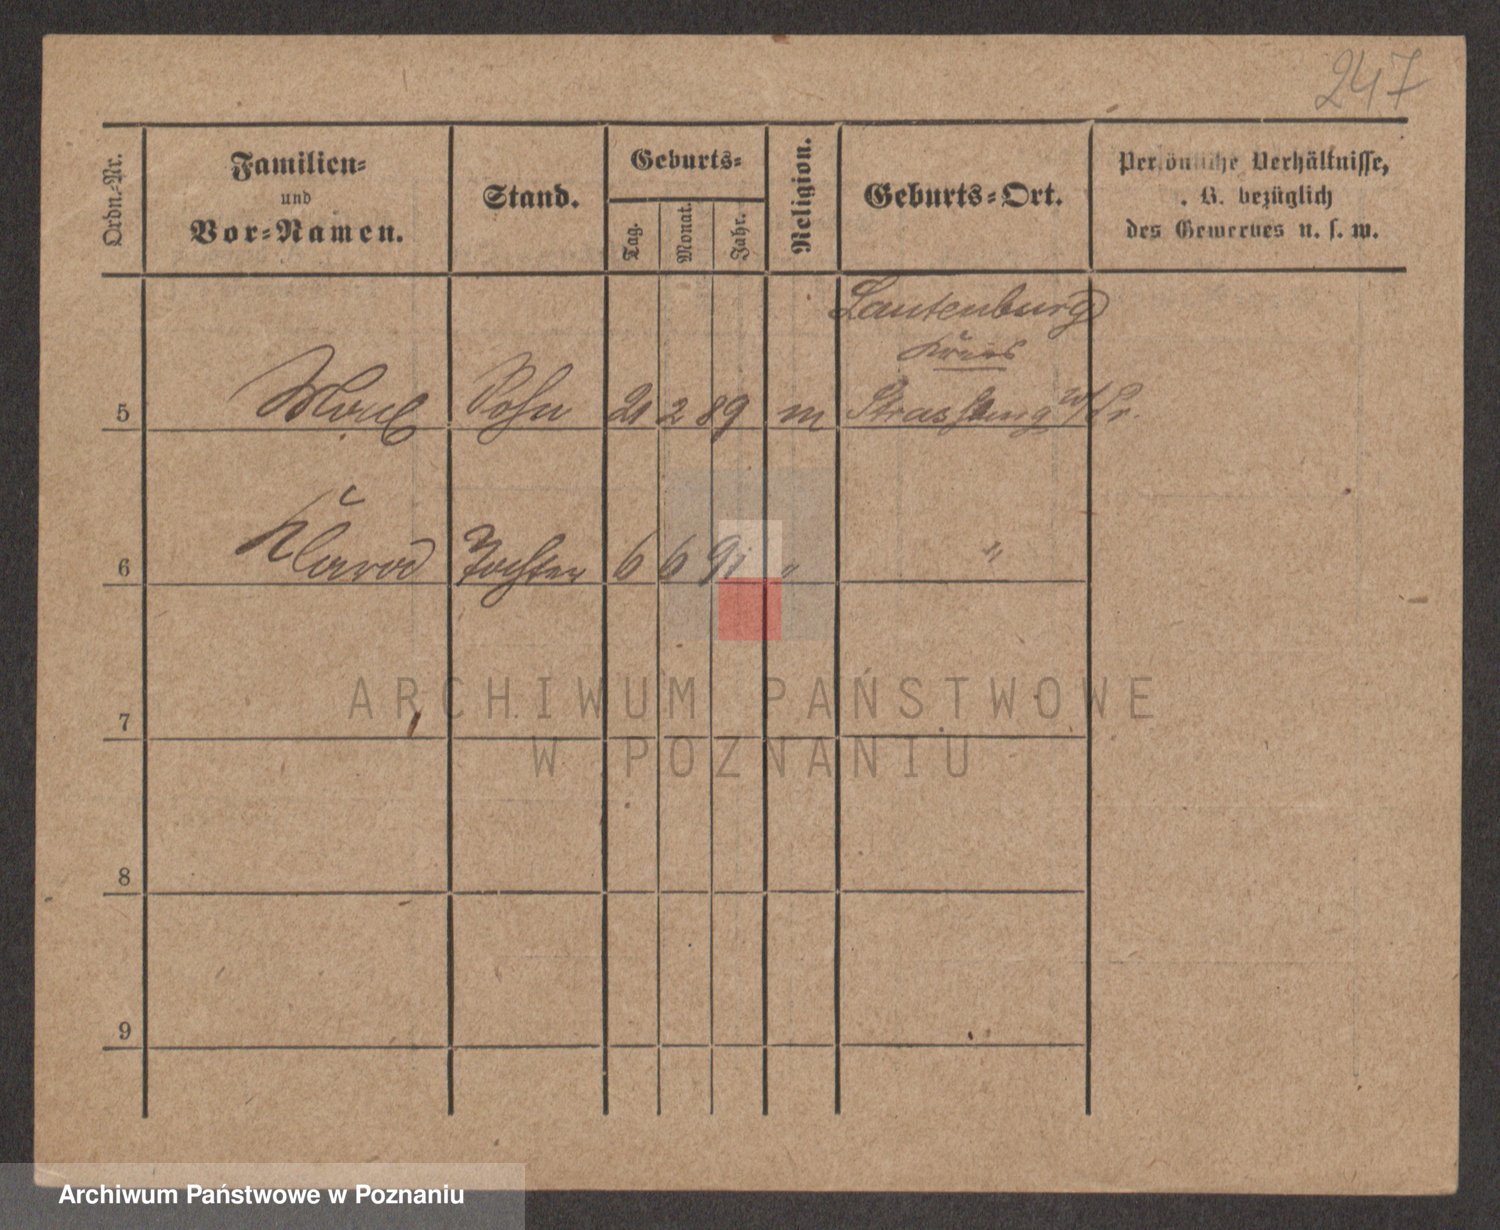 247
Ordn.-Nr.
Familien-
und
Vor-Namen.
Stand.
Geburts-
Tag.
Monat.
Jahr.
Religion.
Geburts-Ort.
Persönliche Verhältnisse,
. B. bezüglich
des Gewerbes u. s. w.
Lautenburg
Kreis
5 Sohn 21 2 89 m Strassburg W/Pr.
6 Tochter 6 6 91 " "
7
ARCHIWUM PAŃSTWOWE
W POZNANIU
8
9
Archiwum Państwowe w Poznaniu